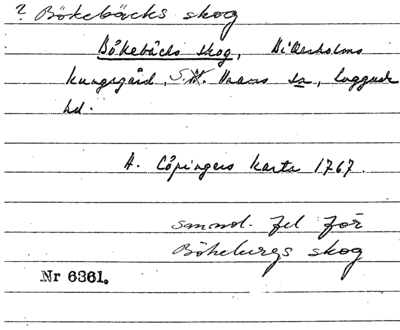 ? Bökebäcks skog
Bökebäcks skog, Villersholms
kungsgård, S. Vrams sn, Luggude
hd.
A. Cöpingers karta 1767.
sannol. fel för
Bökebergs skog
Nr 6361.